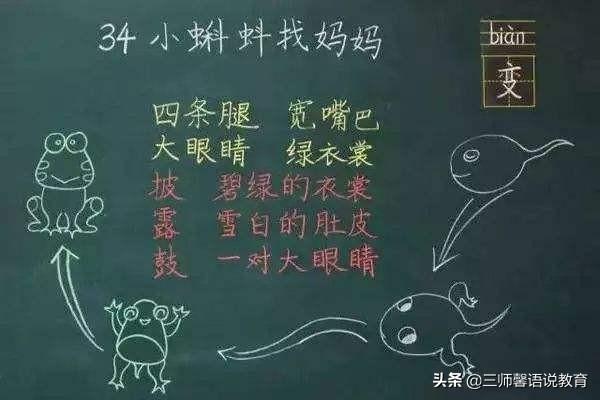 34 小蝌蚪找妈妈
biàn
变
四条腿 宽嘴巴
大眼睛 绿衣裳
披 碧绿的衣裳
露 雪白的肚皮
鼓 一对大眼睛
头条 @三师馨语说教育